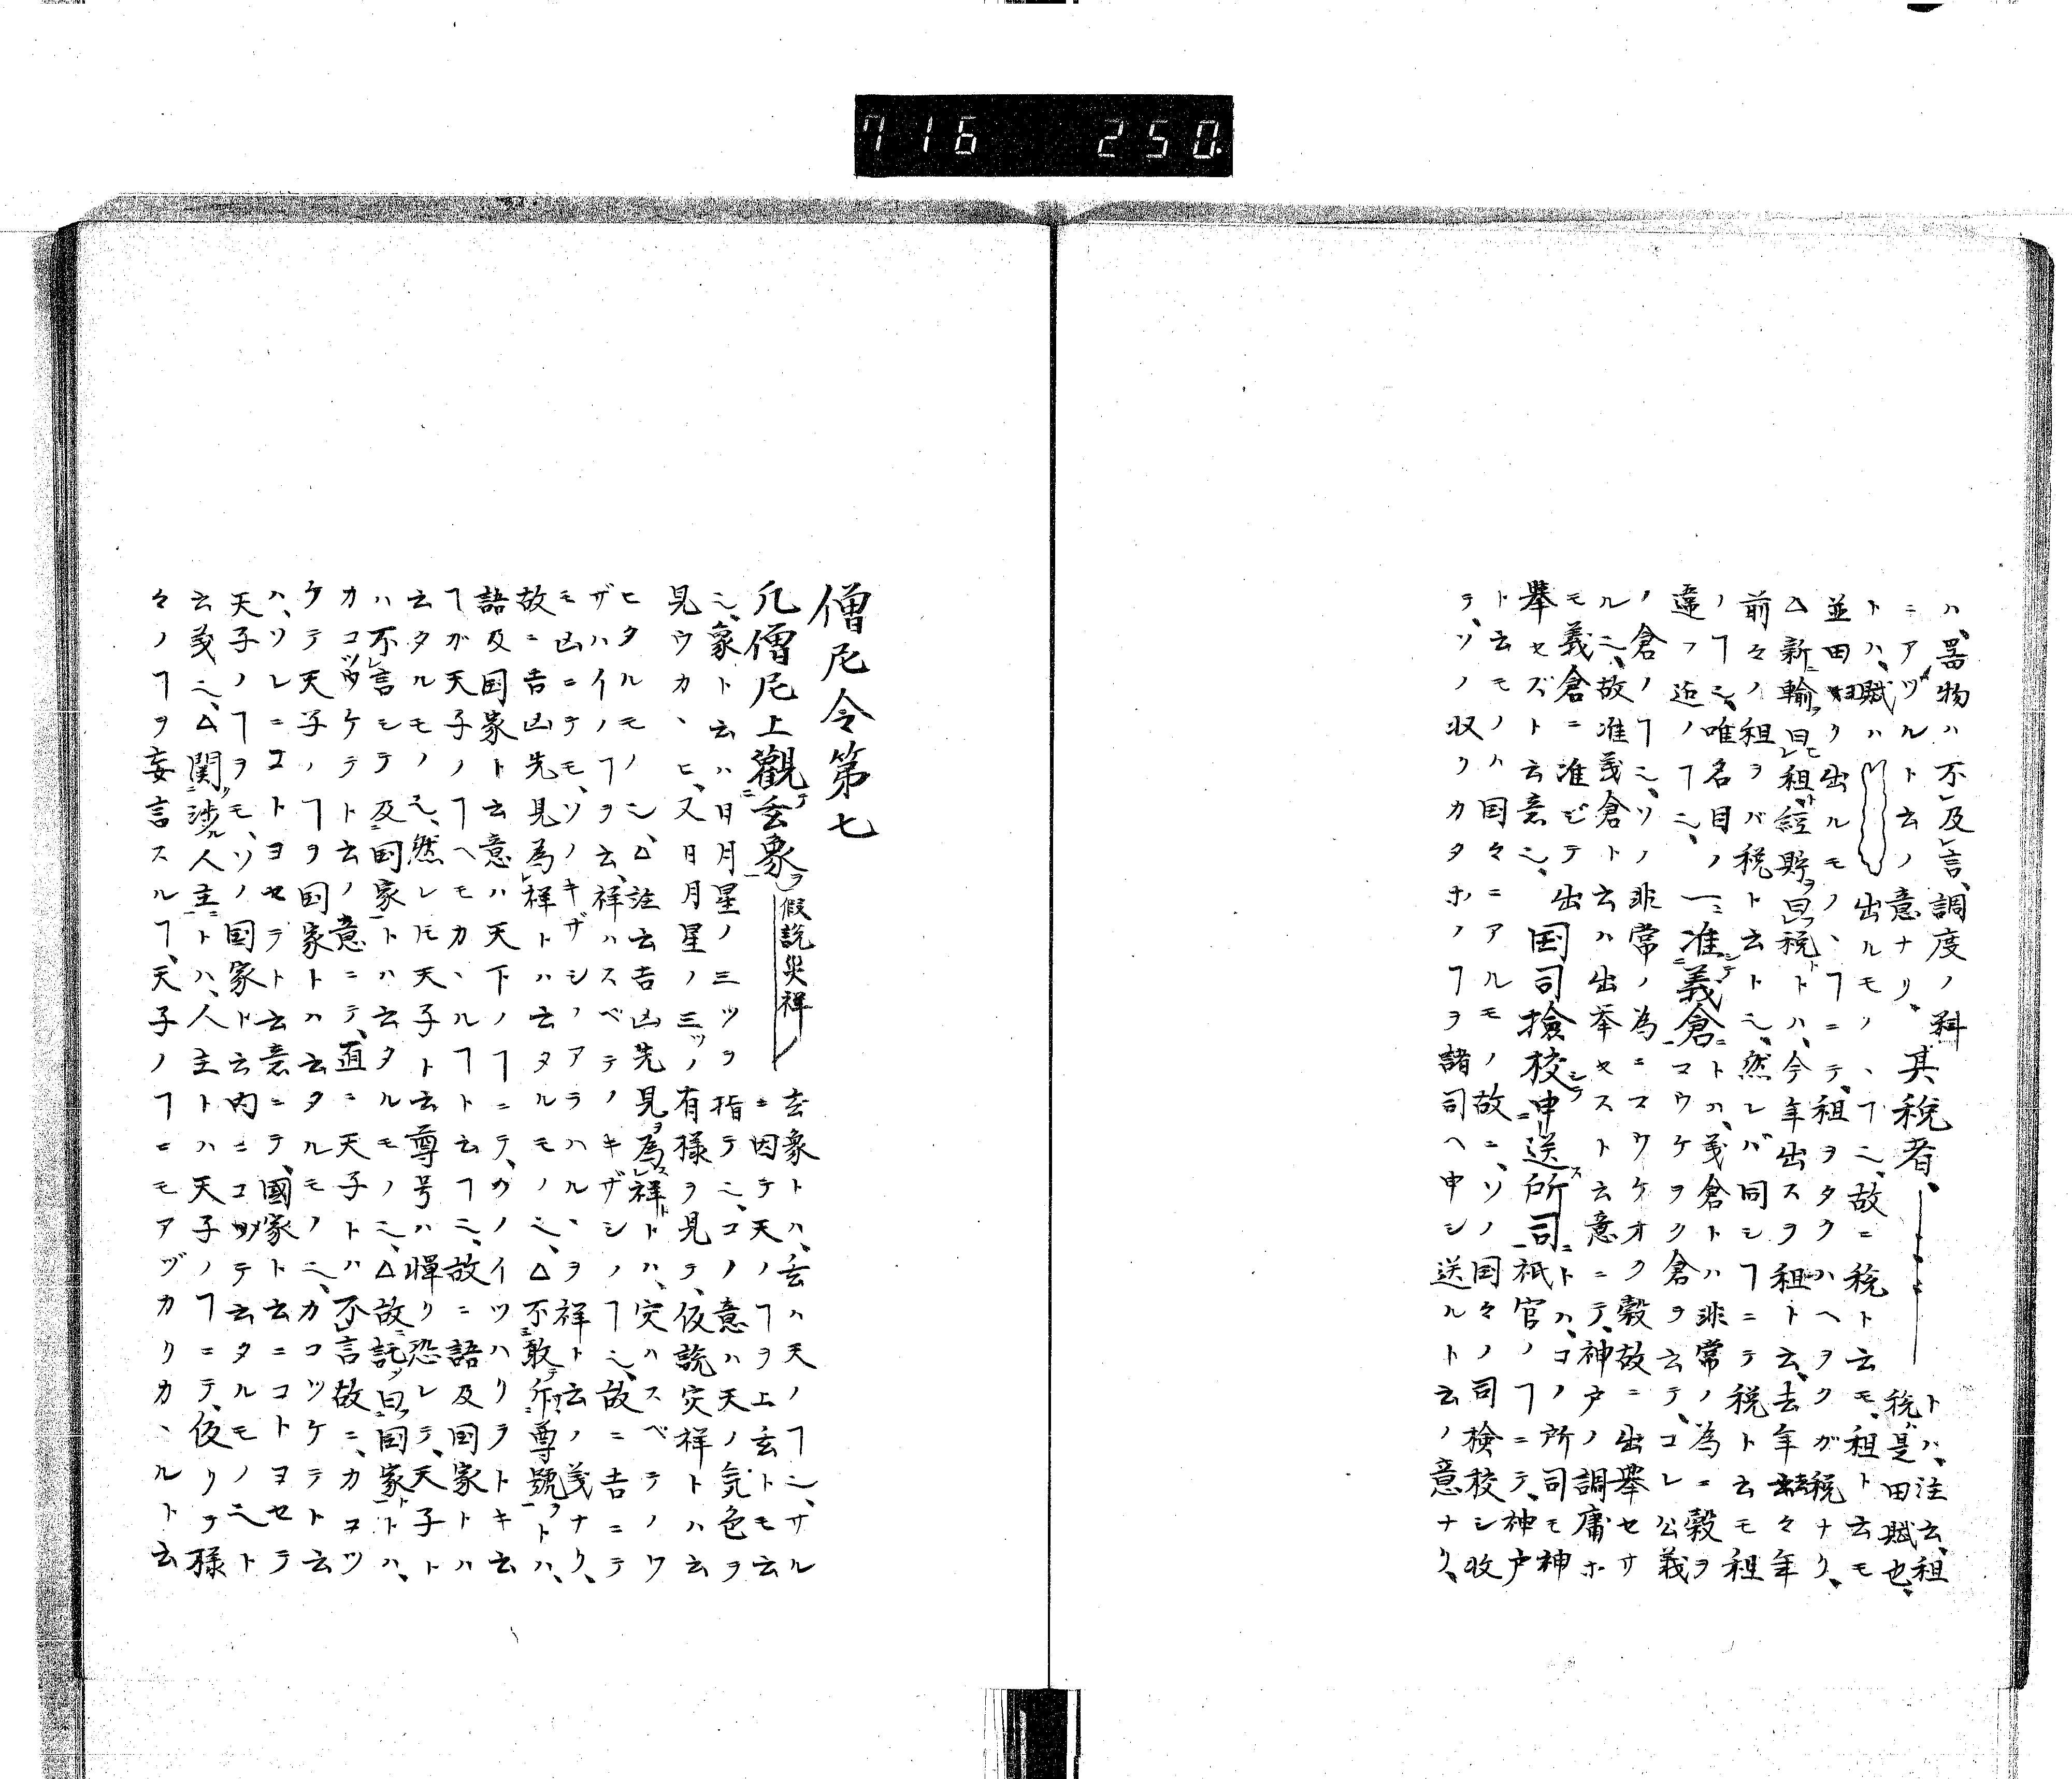 716 250
ハ、器物ハ不レ及レ言、調度ノ料 其税者、 トハ、注云、租
ニアツルト云ノ意ナリ、 税是田賦也、
トハ、賦ハ 出ルモノヽヿ也、故ニ税ト云モ、租ト云モ
並田ヨリ出ルモノヽヿニテ、租ヲタクハヘヲクガ税ナリ、
△新輸曰レ租、経貯曰レ税トハ、今年出スヲ租ト云、去年々年
前々ノ租ヲバ税ト云ト也、然レバ同シヿニテ税ト云モ租
ノヿ也、唯名目ノ 准義倉 トハ、義倉トハ非常ノ為ニ穀ヲ
違フ迄ノヿ也、 マウケヲク倉ヲ云テ、コレ公義
ノ倉ノヿ也、ソノ非常ノ為ニマウケオク穀故ニ出挙セサ
ル也、故准義倉ト云ハ出挙セスト云意ニテ、神戸ノ調庸ホ
モ義倉ニ准ビテ出 国司撿校申送所司 トハ、コノ所司モ神
挙セズト云意也、 祇官ノヿニテ、神戸
ト云モノハ国々ニアルモノ故ニ、ソノ国々ノ司検校シ收
テ、ソノ収リカタホノヿヲ諸司ヘ申シ送ルト云ノ意ナリ、
僧尼令第七
凡僧尼上觀玄象 假説災祥 玄象トハ、玄ハ天ノヿ也、サル
ニ因テ天ノヿヲ上玄トモ云
也、象ト云ハ日月星ノ三ツヲ指テ也、コノ意ハ天ノ気色ヲ
見ウカヽヒ、又日月星ノ三ツノ有様ヲ見テ、仮説災祥トハ云
ヒタルモノ也、△註云吉凶先見為レ祥トハ、災ハスベテノワ
ザハイノヿヲ云、祥ハスベテノキザシノヿ也、故ニ吉ニテ
モ凶ニテモ、ソノキザシノアラハルヽヲ祥ト云ノ義ナリ、
故ニ吉凶先見為レ祥トハ云タルモノ也、△不敢斥尊號トハ、
語及国家ト云意ハ天下ノヿニテ、カノイツハリヲトキ云
ヿガ天子ノヿヘモカヽルヿト云ヿ也、故ニ語及国家トハ
云タルモノ也、然レ𪜈天子ト云尊号ハ憚リ恐レテ、天子ト
ハ不レ言シテ及国家トハ云タルモノ也、△故託曰国家トハ、
カコツケテト云ノ意ニテ、直ニ天子トハ不レ言故ニ、カコツ
ケテ天子ノヿヲ国家トハ云タルモノ也、カコツケテト云
ハ、ソレニコトヨセテト云意ニテ、國家ト云ニコトヨセテ
天子ノヿヲモ、ソノ国家ト云内ニコメテ云タルモノ也ト
云義也、△関渉人主トハ、人主トハ天子ノヿニテ、仮リテ様
々ノヿヲ妄言スルヿ、天子ノヿニモアヅカリカヽルト云